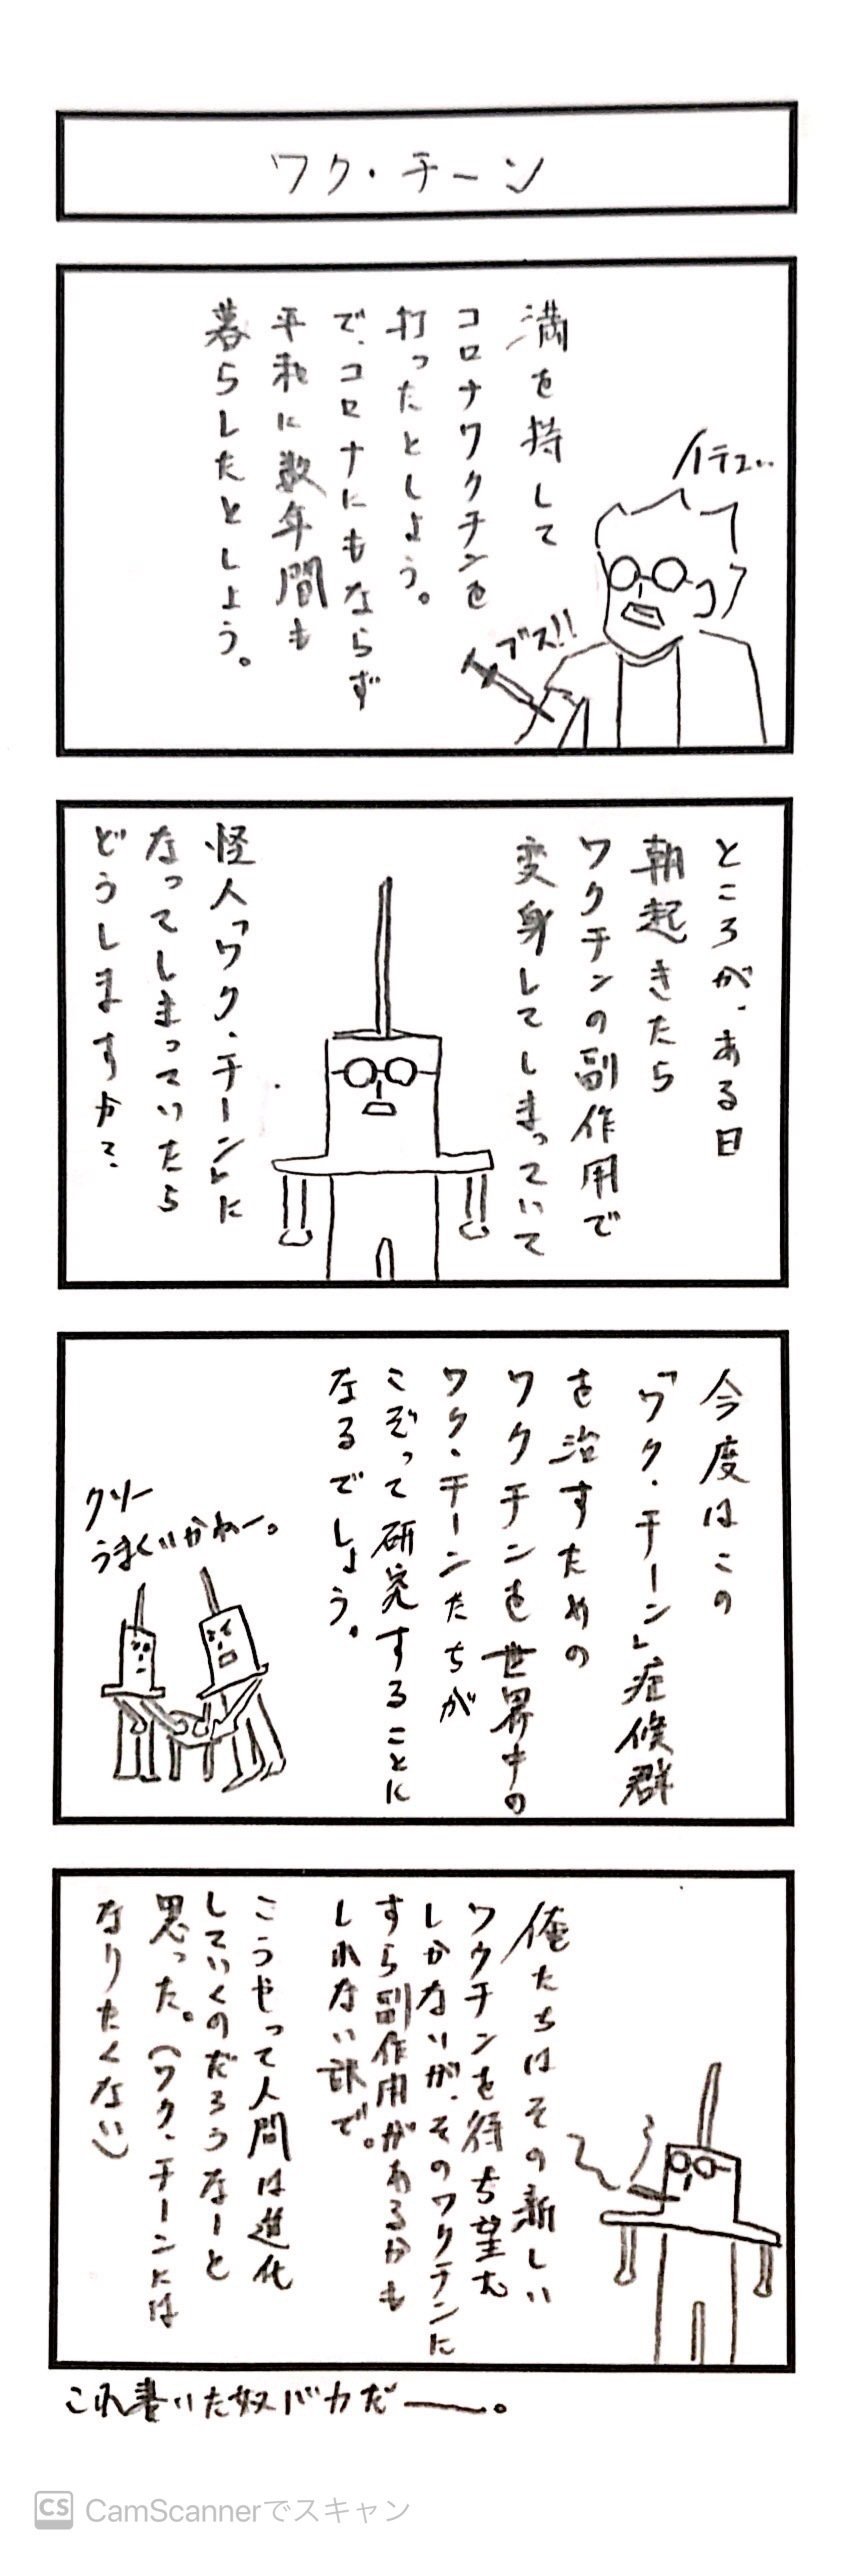 ワク・チーン
満を持して
コロナワクチンを
打ったとしよう。
で、コロナにもならず
平和に数年間も
暮らしたとしよう。
イテュ..
ブス!!
ところが、ある日
朝起きたら
ワクチンの副作用で
変身してしまっていて
怪人「ワク・チーン」に
なってしまっていたら
どうしますか?
今度はこの
「ワク・チーン」症候群
を治すための
ワクチンを世界中の
ワク・チーンたちが
こぞって研究することに
なるでしょう。
クソー
うまくいかねー。
俺たちはその新しい
ワクチンを待ち望む
しかないが、そのワクチンに
すら副作用があるかも
しれない訳で。
こうやって人間は進化
していくのだろうなーと
思った。(ワク・チーンには
なりたくない)
これ書いた奴バカだー。
CS CamScannerでスキャン